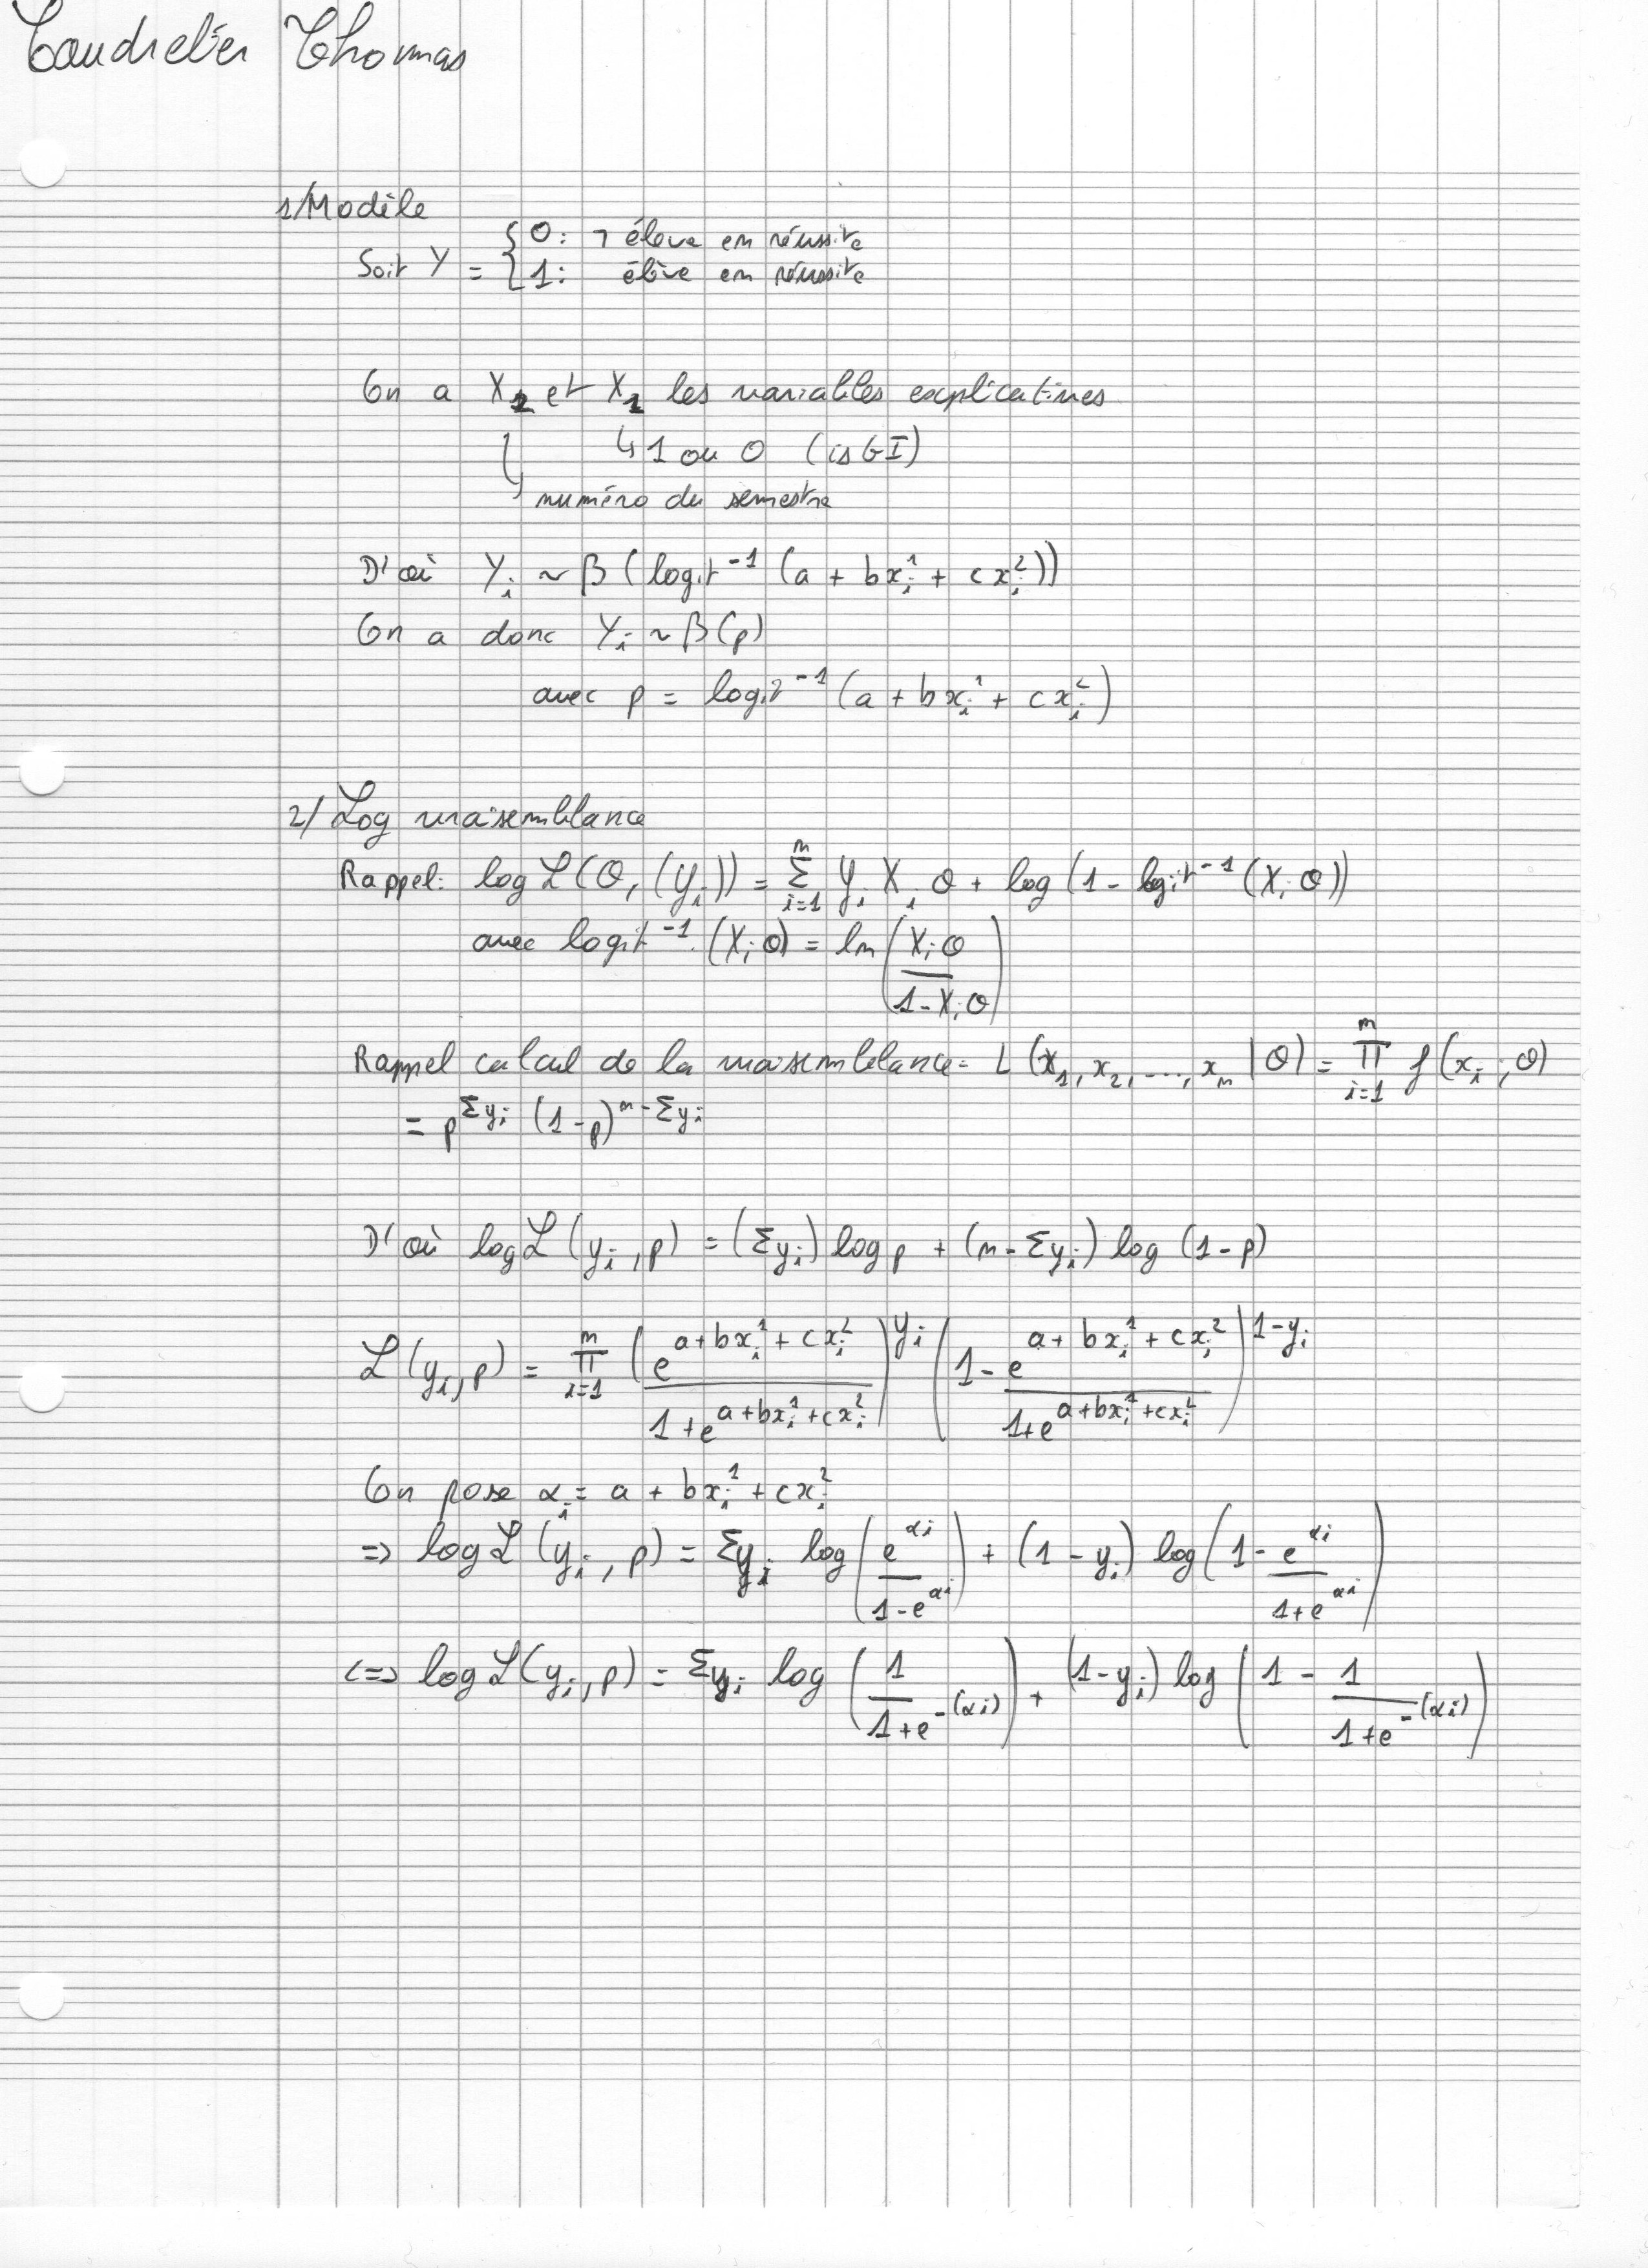 Coudrelier Thomas
1/ Modèle
Soit Y = { 0 : ¬ élève en réussite
{ 1 : élève en réussite
On a X₂ et X₁ les variables explicatives
↳ 1 ou 0 (is GI)
↳ numéro du semestre
D'où Yᵢ ~ β(logit⁻¹(a + bxᵢ¹ + cxᵢ²))
On a donc Yᵢ ~ β(p)
avec p = logit⁻¹(a + bxᵢ¹ + cxᵢ²)
2/ Log vraisemblance
Rappel: log ℒ(θ, (yᵢ)) = Σᵢ₌₁ⁿ yᵢ Xᵢ θ + log(1 - logit⁻¹(Xᵢ θ))
avec logit⁻¹(Xᵢ θ) = ln(Xᵢ θ / (1 - Xᵢ θ))
Rappel calcul de la vraisemblance = L(x₁, x₂, ..., xₙ | θ) = Πᵢ₌₁ⁿ f(xᵢ ; θ)
= p^(Σyᵢ) (1-p)^(n - Σyᵢ)
D'où log ℒ(yᵢ, p) = (Σyᵢ) log p + (n - Σyᵢ) log (1 - p)
ℒ(yᵢ, p) = Πᵢ₌₁ⁿ (e^(a + bxᵢ¹ + cxᵢ²) / (1 + e^(a + bxᵢ¹ + cxᵢ²)))^(yᵢ) (1 - e^(a + bxᵢ¹ + cxᵢ²) / (1 + e^(a + bxᵢ¹ + cxᵢ²)))^(1-yᵢ)
On pose αᵢ = a + bxᵢ¹ + cxᵢ²
=> log ℒ(yᵢ, p) = Σyᵢ log(e^(αi) / (1 - e^(αi))) + (1 - yᵢ) log(1 - e^(αi) / (1 + e^(αi)))
<=> log ℒ(yᵢ, p) = Σyᵢ log(1 / (1 + e^(-(αi)))) + (1 - yᵢ) log(1 - 1 / (1 + e^(-(αi))))